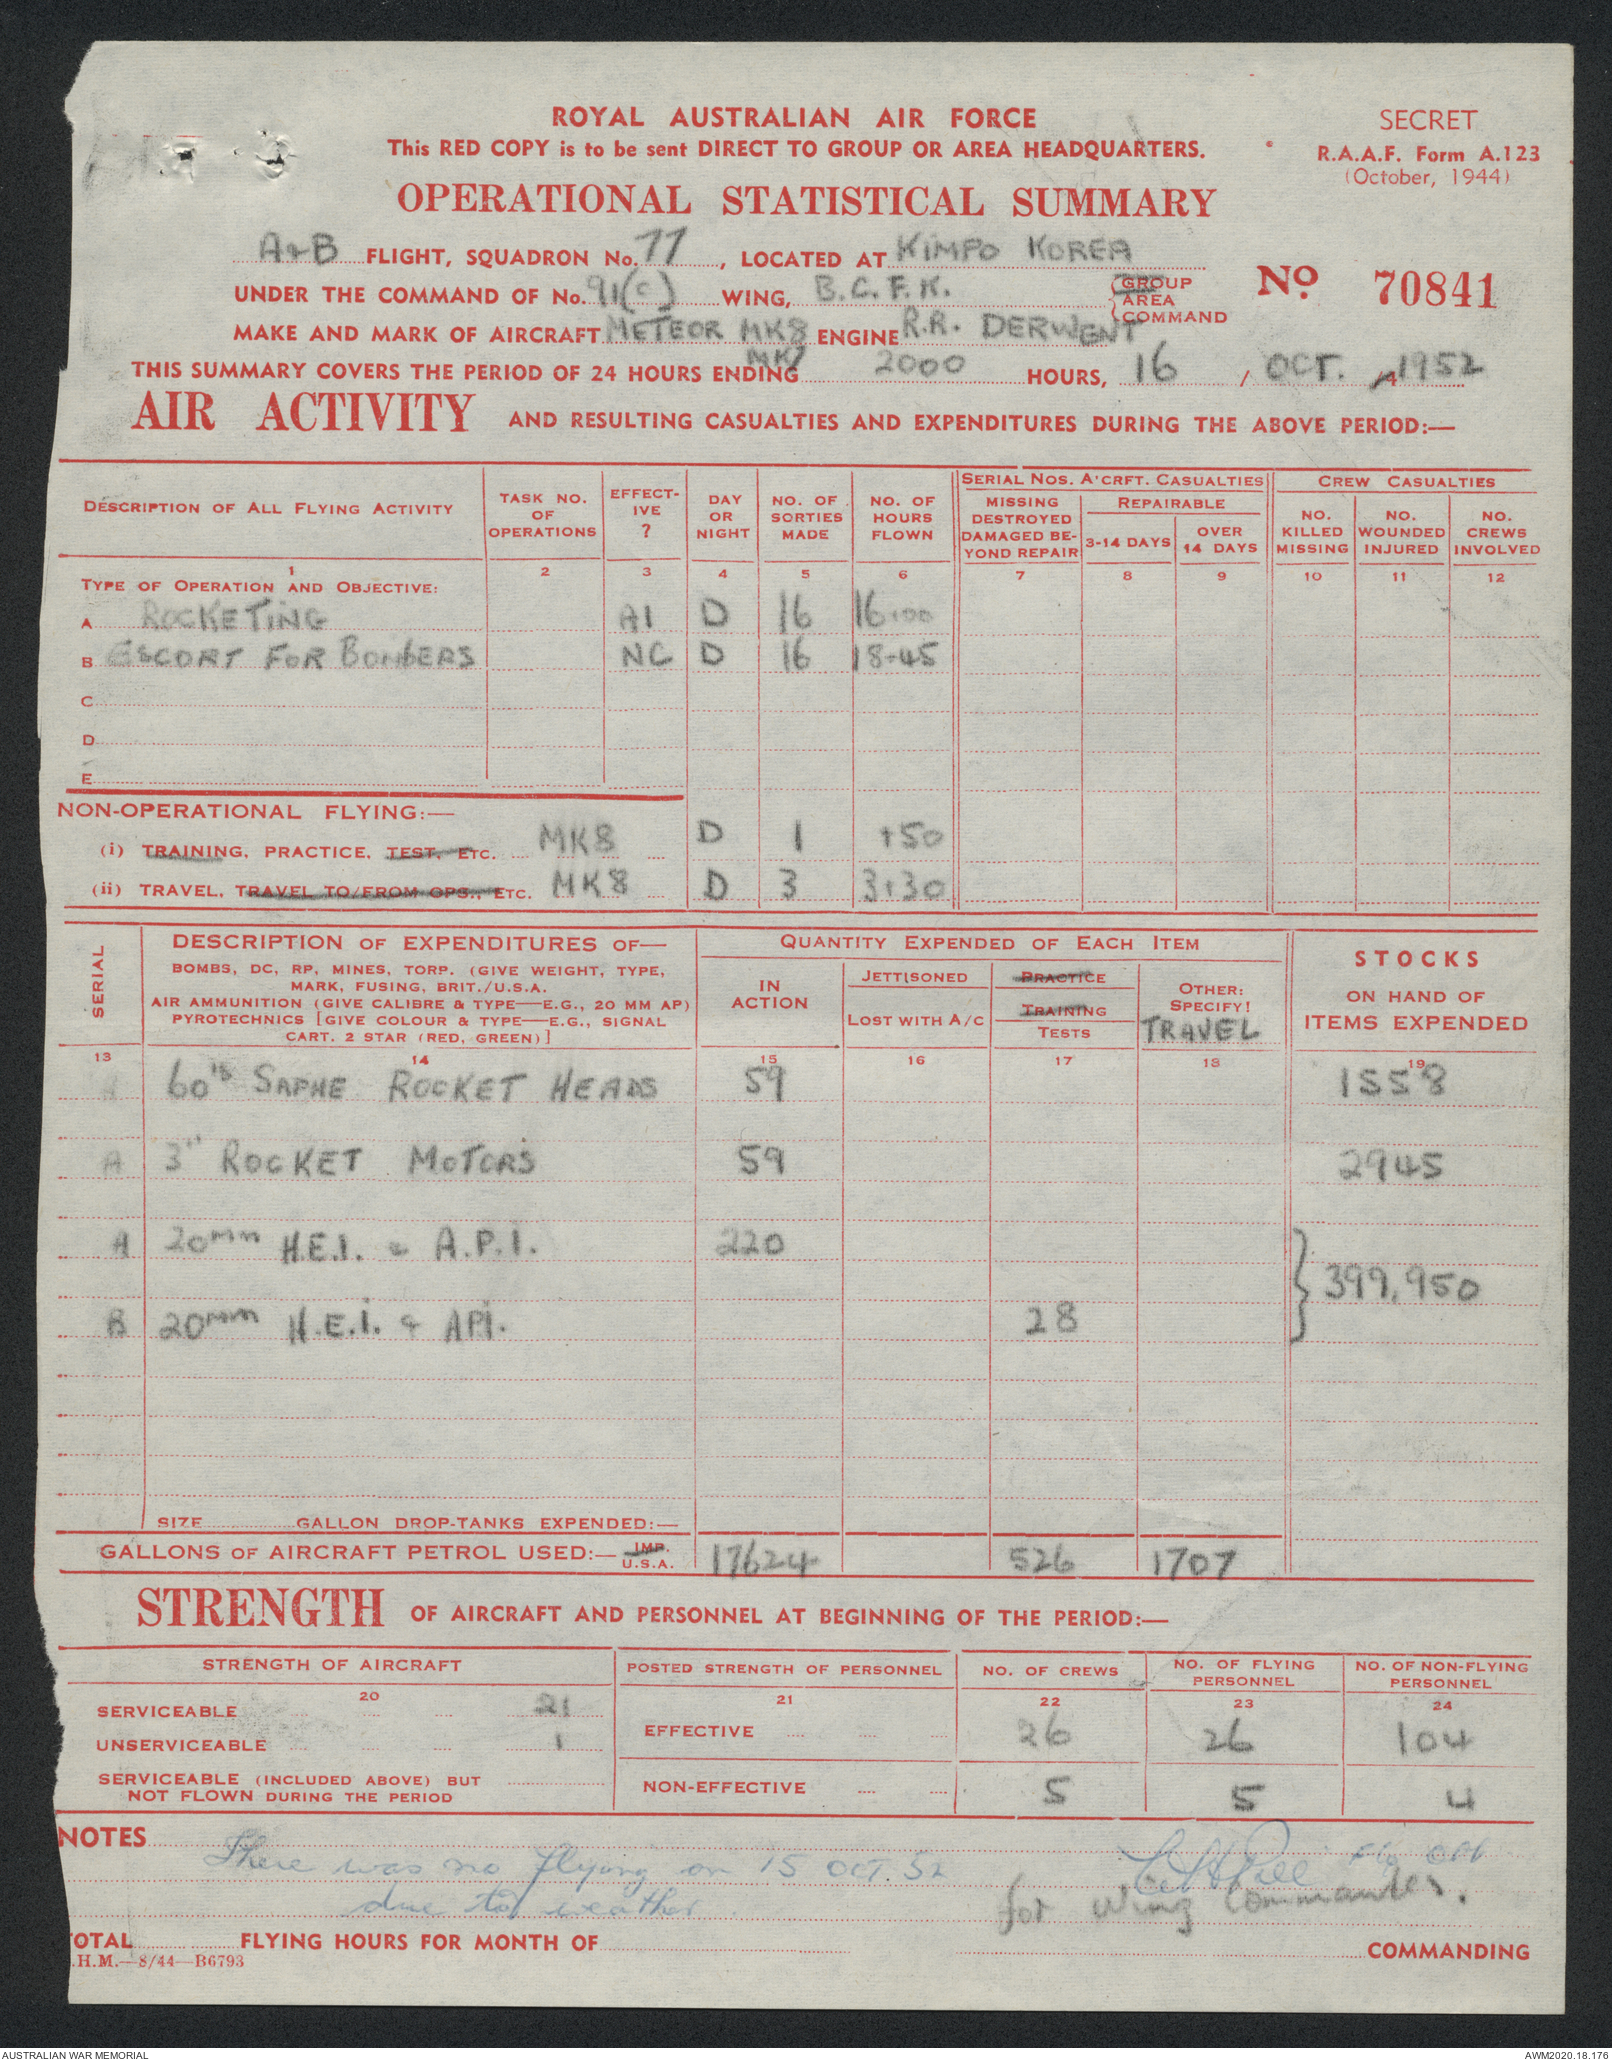 ROYAL AUSTRALIAN AIR FORCE
SECRET
This RED COPY is to be sent DIRECT TO GROUP OR AREA HEADQUARTERS.
R.A.A.F. Form A.123
(October, 1944)
OPERATIONAL STATISTICAL SUMMARY
A+B FLIGHT, SQUADRON No. 77, LOCATED AT KIMPO KOREA
UNDER THE COMMAND OF No. 91(C) WING, B.C.F.K. GROUP AREA COMMAND
No. 70841
MAKE AND MARK OF AIRCRAFT METEOR MK8 ENGINE R.R. DERWENT
MK7
THIS SUMMARY COVERS THE PERIOD OF 24 HOURS ENDING 2000 HOURS, 16 / OCT. 1952
AIR ACTIVITY AND RESULTING CASUALTIES AND EXPENDITURES DURING THE ABOVE PERIOD:—
DESCRIPTION OF ALL FLYING ACTIVITY
TASK NO. OF OPERATIONS
EFFECT-IVE ?
DAY OR NIGHT
NO. OF SORTIES MADE
NO. OF HOURS FLOWN
SERIAL NOS. A'CRFT. CASUALTIES
MISSING DESTROYED DAMAGED BE-YOND REPAIR
REPAIRABLE
3-14 DAYS
OVER 14 DAYS
CREW CASUALTIES
NO. KILLED MISSING
NO. WOUNDED INJURED
NO. CREWS INVOLVED
1 2 3 4 5 6 7 8 9 10 11 12
TYPE OF OPERATION AND OBJECTIVE:
A ROCKETING A1 D 16 16.00
B ESCORT FOR BOMBERS NC D 16 18-45
C
D
E
NON-OPERATIONAL FLYING:—
(i) TRAINING, PRACTICE, TEST, ETC. MK8 D 1 +50
(ii) TRAVEL, TRAVEL TO/FROM OPS., ETC. MK8 D 3 3+30
SERIAL
DESCRIPTION OF EXPENDITURES OF—
BOMBS, DC, RP, MINES, TORP. (GIVE WEIGHT, TYPE,
MARK, FUSING, BRIT./U.S.A.
AIR AMMUNITION (GIVE CALIBRE & TYPE—E.G., 20 MM AP)
PYROTECHNICS [GIVE COLOUR & TYPE—E.G., SIGNAL
CART. 2 STAR (RED, GREEN)]
QUANTITY EXPENDED OF EACH ITEM
IN ACTION
JETTISONED
LOST WITH A/C
PRACTICE
TRAINING
TESTS
OTHER: SPECIFY!
TRAVEL
STOCKS
ON HAND OF
ITEMS EXPENDED
13 14 15 16 17 18 19
A 60lb SAPHE ROCKET HEADS 59 1558
A 3" ROCKET MOTORS 59 2945
A 20mm H.E.I. & A.P.I. 220
} 399,950
B 20mm H.E.I. & API. 28
SIZE GALLON DROP-TANKS EXPENDED:—
GALLONS OF AIRCRAFT PETROL USED:— IMP. U.S.A. 17624 526 1707
STRENGTH OF AIRCRAFT AND PERSONNEL AT BEGINNING OF THE PERIOD:—
STRENGTH OF AIRCRAFT
POSTED STRENGTH OF PERSONNEL
NO. OF CREWS
NO. OF FLYING PERSONNEL
NO. OF NON-FLYING PERSONNEL
20 21 22 23 24
SERVICEABLE 21
EFFECTIVE 26 26 104
UNSERVICEABLE 1
SERVICEABLE (INCLUDED ABOVE) BUT
NOT FLOWN DURING THE PERIOD
NON-EFFECTIVE 5 5 4
NOTES There was no flying on 15 OCT. 52
due to weather.
for Wing Commander.
OTAL FLYING HOURS FOR MONTH OF COMMANDING
.H.M.—8/44—B6793
AUSTRALIAN WAR MEMORIAL
AWM2020.18.176